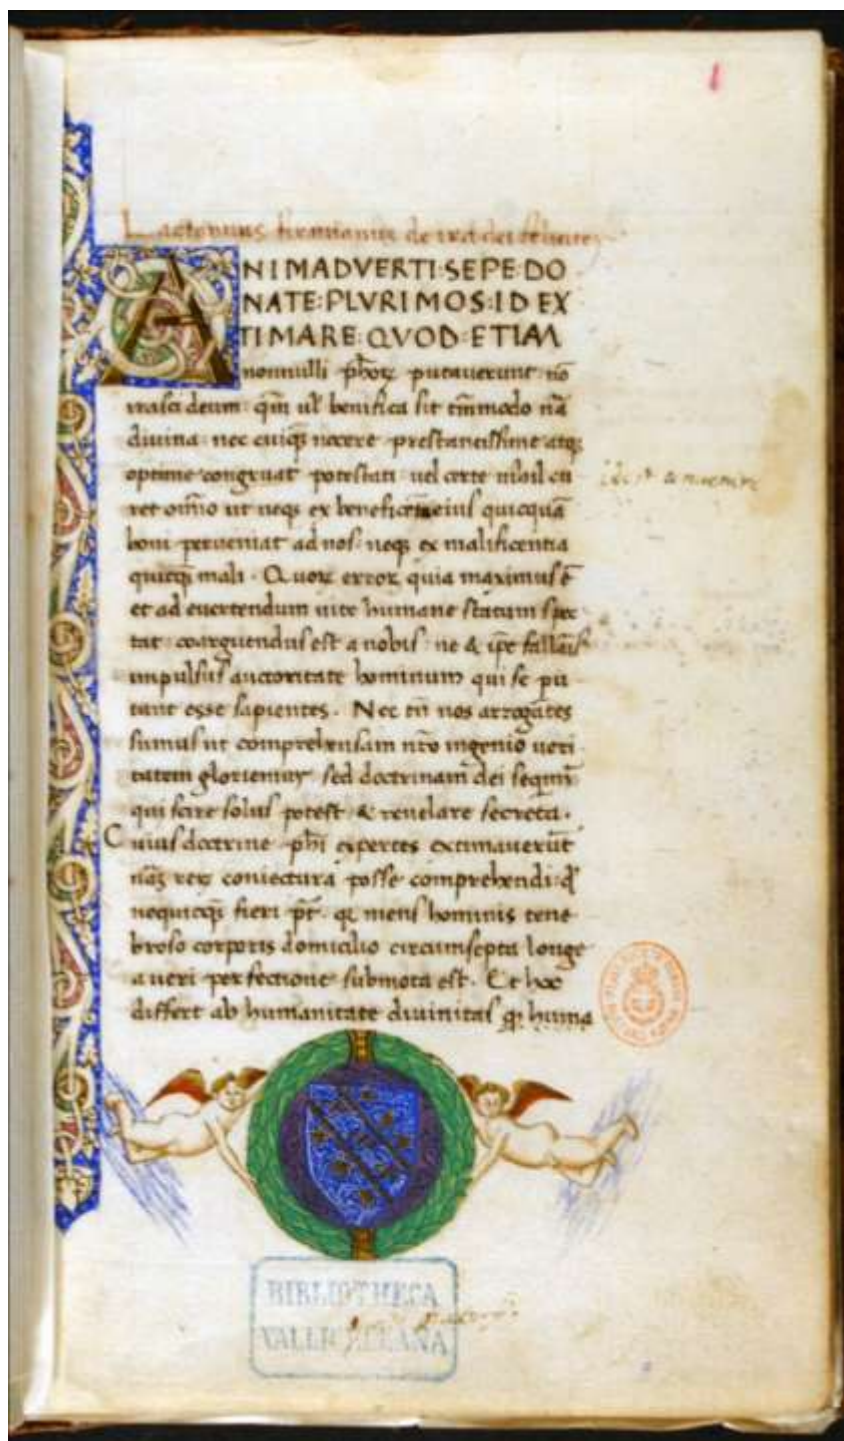 1
Lactantius firmianus de ira dei feliciter
ANIMADVERTI:SEPE:DO
NATE:PLVRIMOS:ID EX
TIMARE:QVOD:ETIAM
nonnulli pħoꝝ putauerunt nō
irasci deum qm̄ ul̄ benifica sit tm̄modo nā
diuina nec cuiq̄ nocere prestantissime atqꝫ
optime congruat potestati uel certe nihil cu
ret om̄io ut neqꝫ ex beneficentia eius quicquā
boni perueniat ad nos neqꝫ ex malificentia
quicq̄ mali. Quoꝝ error quia maximus ē
et ad euertendum uite humane statum spec
tat coarguendus est a nobis ne & ip̄e fallaris
impulsus auctoritate hominum qui se pu
tant esse sapientes. Nec tn̄ nos arrogātes
sumus ut comprehensam nr̄o ingenio ueri
tatem gloriemur sed doctrinam dei seqimr̄
qui scire solus potest & reuelare secreta.
Cuius doctrine pħi expertes extimauerūt
nāꝫ reꝝ coniectura posse comprehendi qđ
nequicq̄ fieri pt̄ qꝫ mens hominis tene
broso corporis domicilio circumsepta longe
a ueri perfectione submota est. Et hoc
differt ab humanitate diuinitas qꝫ huma
BIBLIOTHECA
VALLICELLANA